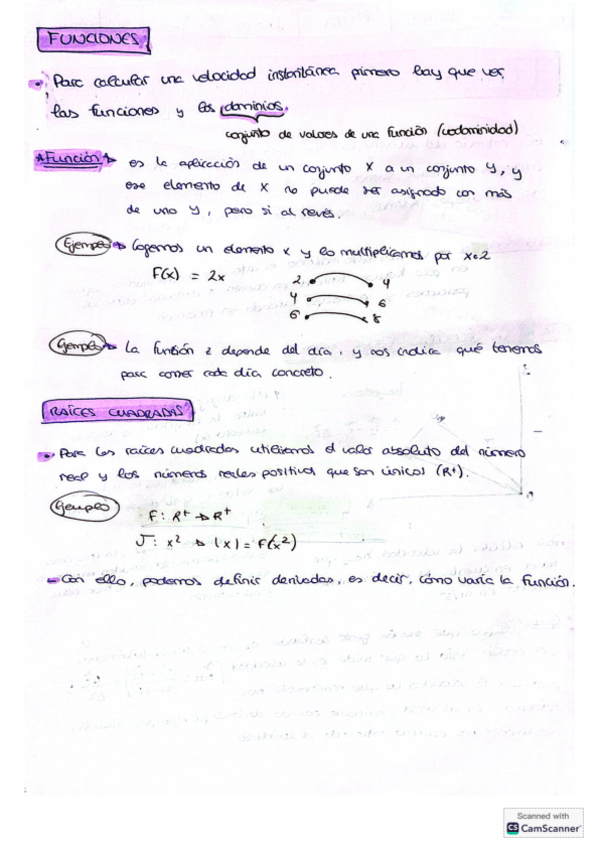 FUNCIONES
Para calcular una velocidad instantánea primero hay que ver
las funciones y los dominios.
conjunto de valores de una función (codominidad)
*Función → es la aplicación de un conjunto X a un conjunto Y, y
ese elemento de X no puede ser asignado con más
de uno Y, pero si al revés.
Ejemplo → Cogemos un elemento x y lo multiplicamos por x=2
F(x) = 2x
2 4
4 6
6 8
Ejemplo → La función z depende del día, y nos indica qué tenemos
para comer cada día concreto.
RAÍCES CUADRADAS
Para las raíces cuadradas utilizamos el valor absoluto del número
real y los números reales positivos que son únicos (R+).
Ejemplo
F: R+ → R+
√: x² → |x| = F(x²)
Con ello, podemos definir derivadas, es decir, cómo varía la función.
Scanned with
CS CamScanner